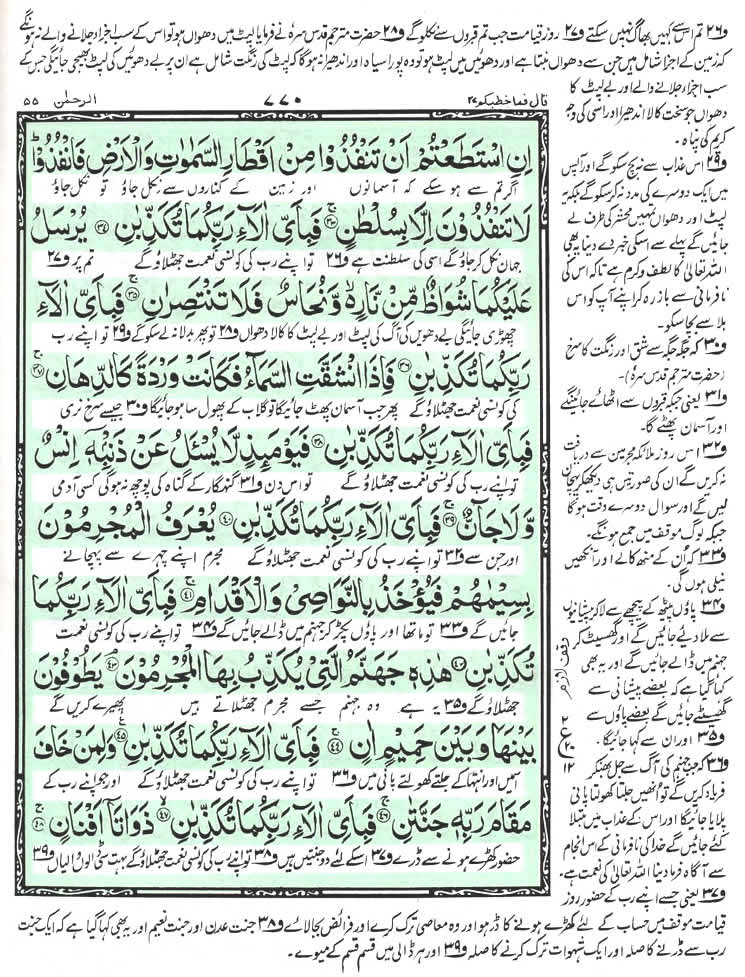 و۲۶ تم اس سے کہیں بھاگ نہیں سکتے و۲۷ روز قیامت جب تم قبروں سے نکلو گے و۲۸ حضرت مترجم قدس سرہ نے فرمایا لپٹ میں دھواں ہو تو اس کے سب اجزاء جلانے والے نہ ہونگے
کہ زمین کے اجزا شامل ہیں جن سے دھواں بنتا ہے اور دھوئیں میں لپٹ ہو تو وہ پورا سیاہ اور اندھیرا نہ ہوگا کہ لپٹ کی رنگت شامل ہے ان پر بے دھوئیں کی لپٹ بھیجی جائیگی جس کے
سب اجزاء جلانے والے اور بے لپٹ کا
دھواں جو سخت کالا اندھیرا اور اسی کی وجہ
کریم کی پناہ۔
و۲۹ اس عذاب سے نہ بچ سکو گے اور آپس
میں ایک دوسرے کی مدد نہ کر سکو گے بلکہ یہ
لپٹ اور دھواں تمہیں محشر کی طرف لے
جائیں گے پہلے سے اسکی خبر دے دینا یہ بھی
اللہ تعالیٰ کا لطف و کرم ہے تاکہ اس کی
نافرمانی سے باز رہ کر اپنے آپ کو اس
بلا سے بچا سکو۔
و۳۰ کہ جگہ جگہ سے شق اور رنگت کا سرخ
(حضرت مترجم قدس سرہ)۔
و۳۱ یعنی جبکہ قبروں سے اٹھائے جائینگے
اور آسمان پھٹے گا۔
و۳۲ اس روز ملائکہ مجرمین سے دریافت
نہ کریں گے ان کی صورتیں ہی دیکھکر پہچان
لیں گے اور سوال دوسرے وقت ہوگا
جبکہ لوگ موقف میں جمع ہونگے۔
و۳۳ کہ ان کے منھ کالے اور آنکھیں
نیلی ہوں گی۔
و۳۴ پاؤں پیٹھ کے پیچھے سے لا کر پیشانیوں
سے ملا دیئے جائیں گے اور گھسیٹ کر
جہنم میں ڈالے جائیں گے اور یہ بھی
کہا گیا ہے کہ بعضے پیشانی سے
گھسیٹے جائیں گے بعضے پاؤں سے
و۳۵ اور ان سے کہا جائیگا۔
و۳۶ کہ جب جہنم کی آگ سے جل بھنکر
فریاد کریں گے تو انھیں جلتا کھولتا پانی
پلایا جائیگا اور اس کے عذاب میں مبتلا
کئے جائیں گے خدا کی نافرمانی کے اس انجام
سے آگاہ فرما دینا اللہ تعالیٰ کی نعمت ہے۔
و۳۷ یعنی جسے اپنے رب کے حضور روز
قیامت موقف میں حساب کے لئے کھڑے ہونے کا ڈر ہو اور وہ معاصی ترک کرے اور فرائض بجا لائے و۳۸ جنت عدن اور جنت نعیم اور یہ بھی کہا گیا ہے کہ ایک جنت
رب سے ڈرنے کا صلہ اور ایک شہوات ترک کرنے کا صلہ و۳۹ اور ہر ڈالی میں قسم قسم کے میوے۔
قال فما خطبکم ۲۷
۷۷۰
الرحمٰن ۵۵
اِنِ اسْتَطَعْتُمْ اَنْ تَنْفُذُوْا مِنْ اَقْطَارِ السَّمٰوٰتِ وَالْاَرْضِ فَانْفُذُوْا ؕ
اگر تم سے ہو سکے کہ آسمانوں اور زمین کے کناروں سے نکل جاؤ تو نکل جاؤ
لَا تَنْفُذُوْنَ اِلَّا بِسُلْطٰنٍ ۚ۳۳ فَبِاَیِّ اٰلَآءِ رَبِّكُمَا تُكَذِّبٰنِ ۳۴ یُرْسَلُ
جہاں نکل کر جاؤ گے اسی کی سلطنت ہے و۲۶ تو اپنے رب کی کونسی نعمت جھٹلاؤ گے تم پر و۲۷
عَلَیْكُمَا شُوَاظٌ مِّنْ نَّارٍ ۙ۬ وَّنُحَاسٌ فَلَا تَنْتَصِرٰنِ ۚ۳۵ فَبِاَیِّ اٰلَآءِ
چھوڑی جائیگی بے دھوئیں کی آگ کی لپٹ اور بے لپٹ کا کالا دھواں و۲۸ تو پھر بدلا نہ لے سکو گے و۲۹ تو اپنے رب
رَبِّكُمَا تُكَذِّبٰنِ ۳۶ فَاِذَا انْشَقَّتِ السَّمَآءُ فَكَانَتْ وَرْدَةً كَالدِّهَانِ ۚ۳۷
کی کونسی نعمت جھٹلاؤ گے پھر جب آسمان پھٹ جائیگا تو گلاب کے پھول سا ہو جائیگا و۳۰ جیسے سرخ نری
فَبِاَیِّ اٰلَآءِ رَبِّكُمَا تُكَذِّبٰنِ ۳۸ فَیَوْمَىِٕذٍ لَّا یُسْـَٔلُ عَنْ ذَنْۢبِهٖۤ اِنْسٌ
تو اپنے رب کی کونسی نعمت جھٹلاؤ گے تو اس دن و۳۱ گنہگار کے گناہ کی پوچھ نہ ہوگی کسی آدمی
وَّلَا جَآنٌّ ۚ۳۹ فَبِاَیِّ اٰلَآءِ رَبِّكُمَا تُكَذِّبٰنِ ۴۰ یُعْرَفُ الْمُجْرِمُوْنَ
اور جن سے و۳۲ تو اپنے رب کی کونسی نعمت جھٹلاؤ گے مجرم اپنے چہرے سے پہچانے
بِسِیْمٰهُمْ فَیُؤْخَذُ بِالنَّوَاصِیْ وَالْاَقْدَامِ ۚ۴۱ فَبِاَیِّ اٰلَآءِ رَبِّكُمَا
جائیں گے و۳۳ تو ماتھا اور پاؤں پکڑ کر جہنم میں ڈالے جائیں گے و۳۴ تو اپنے رب کی کونسی نعمت
تُكَذِّبٰنِ ۴۲ هٰذِهٖ جَهَنَّمُ الَّتِیْ یُكَذِّبُ بِهَا الْمُجْرِمُوْنَ ۘ۴۳ یَطُوْفُوْنَ
جھٹلاؤ گے و۳۵ یہ ہے وہ جہنم جسے مجرم جھٹلاتے ہیں پھیرے کریں گے
بَیْنَهَا وَبَیْنَ حَمِیْمٍ اٰنٍ ۚ۴۴ فَبِاَیِّ اٰلَآءِ رَبِّكُمَا تُكَذِّبٰنِ ۠۴۵ وَلِمَنْ خَافَ
اسمیں اور انتہا کے جلتے کھولتے پانی میں و۳۶ تو اپنے رب کی کونسی نعمت جھٹلاؤ گے اور جو اپنے رب کے
مَقَامَ رَبِّهٖ جَنَّتٰنِ ۚ۴۶ فَبِاَیِّ اٰلَآءِ رَبِّكُمَا تُكَذِّبٰنِ ۙ۴۷ ذَوَاتَاۤ اَفْنَانٍ ۚ۴۸
حضور کھڑے ہونے سے ڈرے و۳۷ اسکے لئے دو جنتیں ہیں و۳۸ تو اپنے رب کی کونسی نعمت جھٹلاؤ گے بہت سی ڈالوں والیاں و۳۹
وقف لازم
۲
ع
۲۰
۱۲